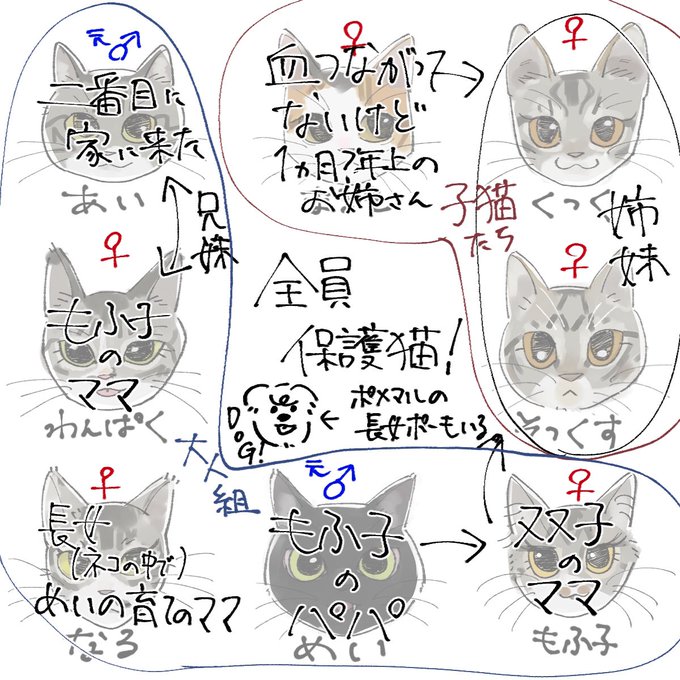 元♂
二番目に
家に来た
あい
♀
血つながって
ないけど
1ヵ月?年上の
お姉さん
♀
くっく
子猫
たち
姉
妹
兄
妹
♀
もふ子
の
ママ
わんぱく
全員
保護猫!
DOG!
← ポメマルの
長女ポーもいる
♀
そっくす
大人
組
♀
長女
(ネコの中で)
めいの育てのママ
なる
元♂
もふ子
の
パパ
めい
♀
双子
の
ママ
もふ子